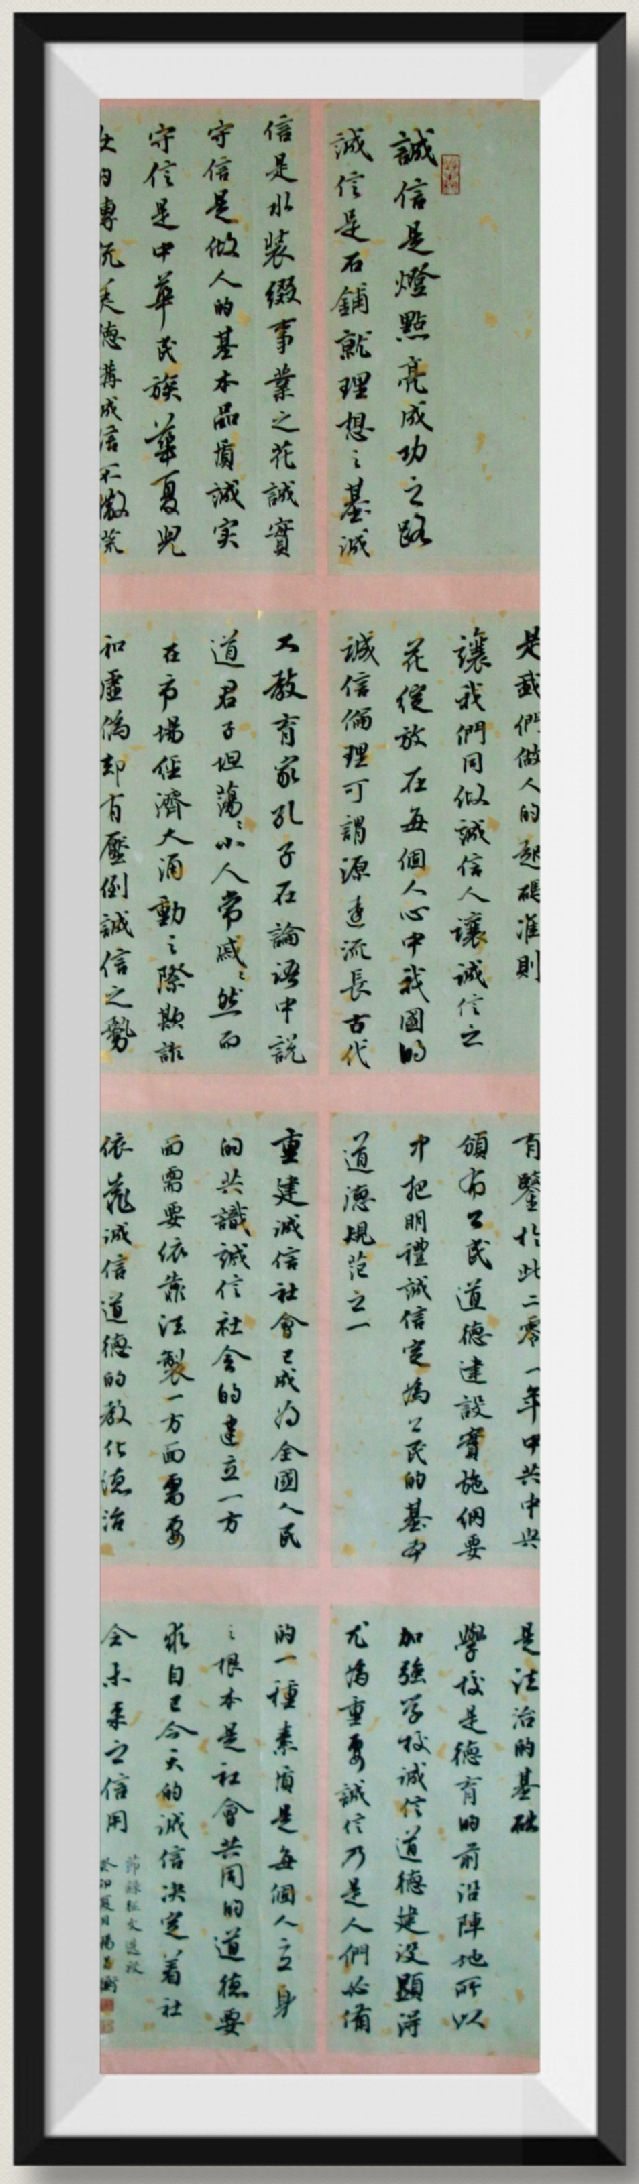 誠信是燈點亮成功之路
誠信是石鋪就理想之基誠
信是水裝綴事業之花誠實
守信是做人的基本品質誠实
守信是中華民族華夏児
女的傳統美德講誠信不欺
是我們做人的起碼准則
讓我們同做誠信人讓誠信之
花綻放在每個人心中我國的
誠信倫理可謂源遠流長古代
大教育家孔子在論語中説
道君子坦蕩々小人常戚々然而
在市場経濟大涌動之際欺詐
和虛偽却有壓倒誠信之勢
有鑒於此二零一年中共中央
頒布公民道德建設實施綱要
中把明禮誠信定為公民的基本
道德規范之一
重建誠信社會已成为全國人民
的共識誠信社会的建立一方
面需要依靠法製一方面需要
依靠誠信道德的教化德治
是法治的基础
學校是德育的前沿陣地所以
加強学校誠信道德建設顯得
尤為重要誠信乃是人們必備
的一種素質是每個人立身
之根本是社會共同的道德要
求自已今天的誠信决定着社
会未来之信用
節錄征文選段